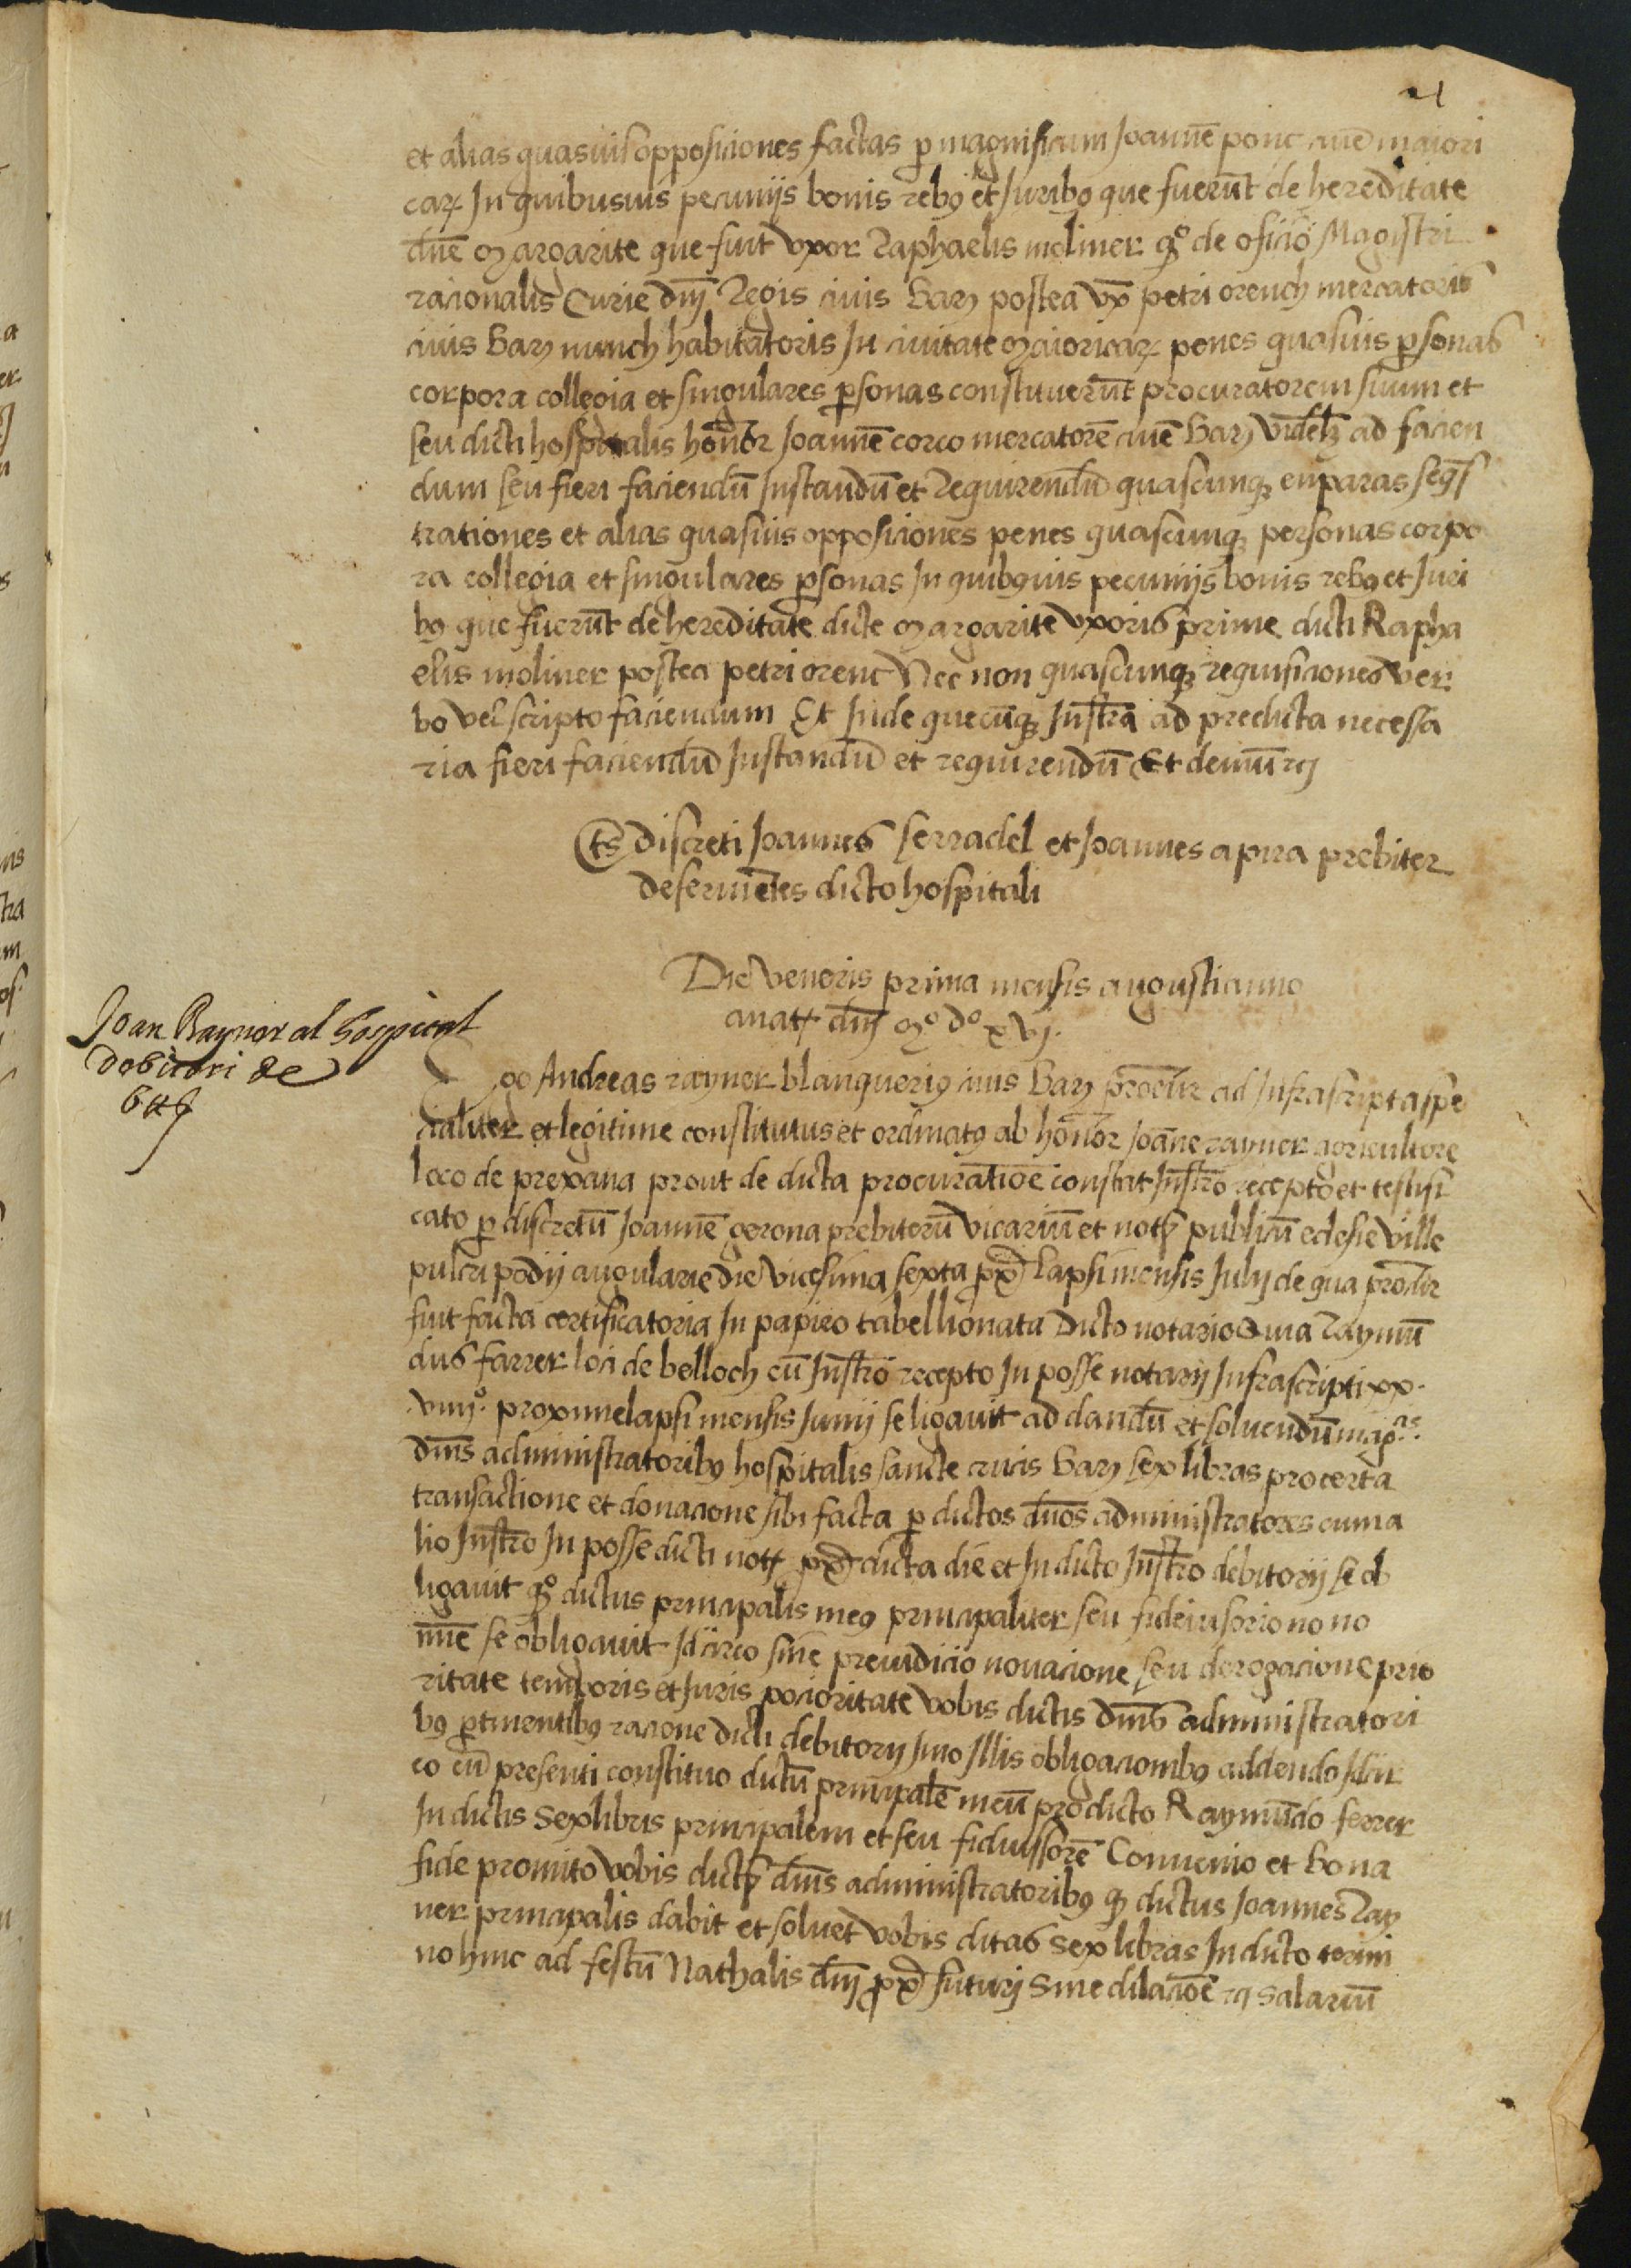 21
et alias quasvis opposiciones factas ꝑ magnificum Joannē ponc civē maiori
caꝝ In quibusvis pecuniis bonis rebꝯ et Juribꝯ que fuerūt de hereditate
dn̄e margarite que fuit uxor raphaelis moliner qº de oficio Magistri
racionalis Curie dnj̄ Regis civis barꝫ postea ux̄ petri orench mercatoris
civis barꝫ nunch habitatoris In civitate maioricaꝝ penes quasvis ꝑsonas
corpora collegia et singulares ꝑsonas constituerūt procuratorem suum et
seu dicti hospitalis honor̄ Joannē corco mercatorē civē barꝫ videlꝫ ad facien
dum seu fieri faciendū Instandū et Requirendū quascunqꝫ enparas seq̄s
trationes et alias quasvis opposiciones penes quascunqꝫ personas corpo
ra collegia et singulares ꝑsonas In quibꝯvis pecuniis bonis rebꝯ et Juri
bꝯ que fuerūt de hereditate dicte margarite uxoris prime dicti Rapha
elis moliner postea petri orenc Nec non quascunqꝫ requisiciones ver
bo vel scripto faciendum Et Inde quecūqꝫ Inst̄ra ad predicta necessa
ria fieri faciendū Instandū et requirendū Et demū rꝫ
Ts̄ discreti Joannes serradel et Joannes apira prebiter
deserviētes dicto hospitali
Die veneris prima mensis augusti anno
anatꝭ dnj̄ mº dº xvj.
Joan Rayner al hospital
debitori de
6 ℔
Ego Andreas rayner blanqueriꝯ civis barꝫ procūr ad Infrascripta spe
cialiter et legitime constitutus et ordinatꝯ ab honor̄ Joāne rayner agricultore
loco de prexana prout de dicta procuratiōe constat Inst̄ro recepto et testifi
cato ꝑ discretū Joannē gerona prebiterū vicariū et notꝭ publicū eclesie ville
pulcri podij angularie die vicesima sexta ꝓx̄ lapsi mensis Julij de qua procūr
fuit facta certificatoria In papiro tabellionata dicto notario Quia raymū
dus farrer loci de belloch cū Inst̄ro recepto In posse notarij Infrascripti xx.
.viiij.º proxime lapsi mensis Junij se ligavit ad dandū et solvendū magᶜⁱˢ.
dn̄is administratoribꝯ hospitalis sancte crucis barꝫ sex libras pro certa
transactione et donacione sibi facta ꝑ dictos dn̄os administratores cum a
lio Inst̄ro In posse dicti notꝭ ꝓx̄ dicta die et In dicto Inst̄ro debitorij se ob
ligavit qº dictus principalis meꝯ principaliter seu fideiusorio no no
mīe se obligavit Idcirco sine preiudicio novacione seu derogacione prio
ritate temporis et Juris pocioritate vobis dictis dn̄is administratori
bꝯ ꝑtinentibꝯ racione dicti debitorij Imo Illis obligacionibꝯ addendo Idcir
co cū presenti constituo dictū principalē meū pro dicto Raymūdo ferrer
In dictis sex libris principalem et seu fidiussorē Convenio et bona
fide promito vobis dictꝭ dn̄is administratoribꝯ qꝫ dictus Joannes Ray
ner principalis dabit et solvet vobis ditas sex libras In dicto termi
no hinc ad festū Nathalis dnj̄ ꝓx̄ futurj sine dilaciōe rꝫ salariū